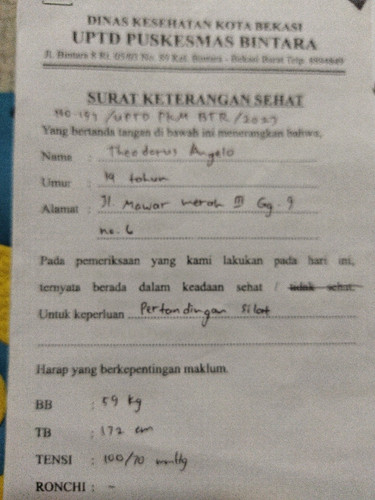 DINAS KESEHATAN KOTA BEKASI
UPTD PUSKESMAS BINTARA
SURAT KETERANGAN SEHAT
Yang bertanda tangan di bawah ini menerangkan bahwa,
Nama : Theodorus Angelo
Umur : 19 tahun
Alamat : Jl. Mawar merah III Gg. 9
no. 6
Pada pemeriksaan yang kami lakukan pada hari ini,
ternyata berada dalam keadaan sehat / tidak sehat.
Untuk keperluan Pertandingan Silat
Harap yang berkepentingan maklum.
BB : 59 kg
TB : 172 cm
TENSI : 100/70 mmHg
RONCHI : -